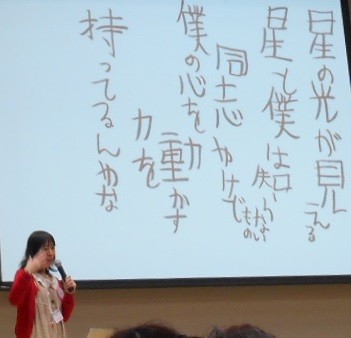 星の光が見える
星も僕は知らない
もの
同志やけど
僕の心を動かす
力を
持ってるんやな